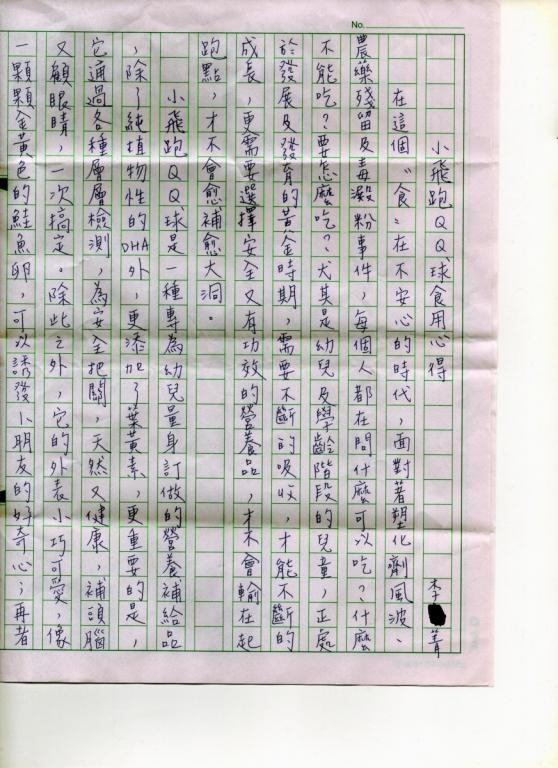 No.
小飛跑QQ球食用心得
李菁
在這個〝食〞在不安心的時代，面對著塑化劑風波、
農藥殘留及毒澱粉事件，每個人都在問什麼可以吃？什麼
不能吃？要怎麼吃？尤其是幼兒及學齡階段的兒童，正處
於發展及發育的黃金時期，需要不斷的吸收，才能不斷的
成長，更需要選擇安全又有功效的營養品，才不會輸在起
跑點，才不會愈補愈大洞。
小飛跑QQ球是一種專為幼兒量身訂做的營養補給品
，除了純植物性的DHA外，更添加了葉黃素，更重要的是，
它通過各種層層檢測，為安全把關，天然又健康，補頭腦
又顧眼睛，一次搞定。除此之外，它的外表小巧可愛，像
一顆顆金黃色的鮭魚卵，可以誘發小朋友的好奇心；再者